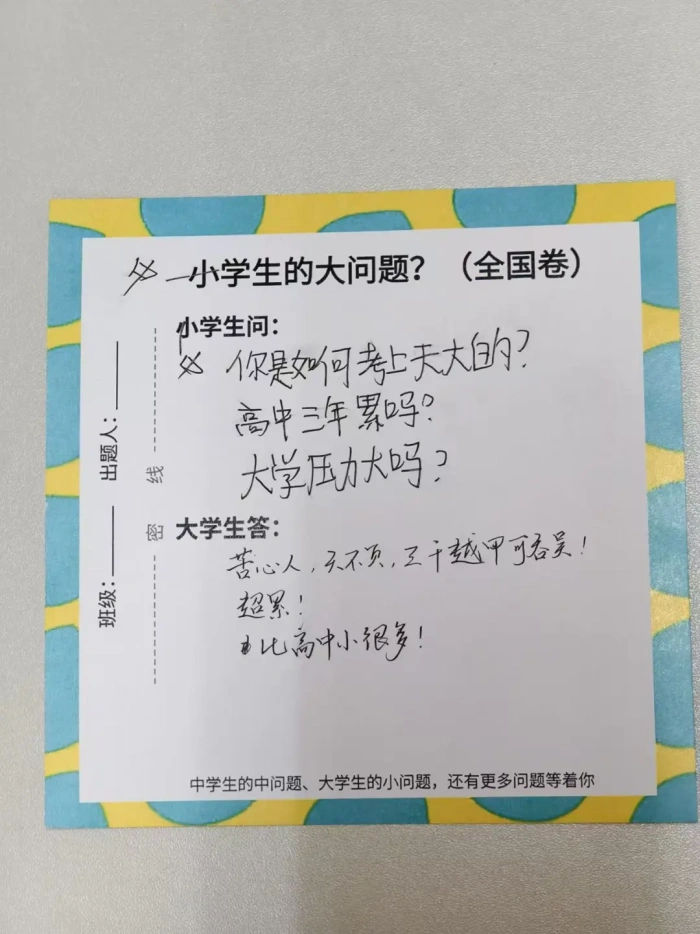 小学生的大问题？（全国卷）
小学生问：
你是如何考上天大的？
高中三年累吗？
大学压力大吗？
大学生答：
苦心人，天不负，三千越甲可吞吴！
超累！
比高中小很多！
中学生的中问题、大学生的小问题，还有更多问题等着你
班级： 出题人：
密 线